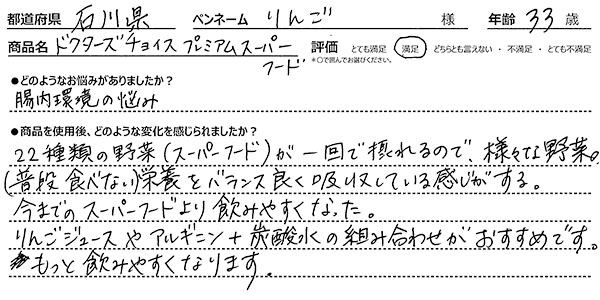 都道府県 石川県 ペンネーム りんご 様 年齢 33 歳
商品名 ドクターズチョイス プレミアムスーパー 評価 とても満足 満足 どちらとも言えない ・ 不満足 ・ とても不満足
フード *〇で囲んでお選びください。
●どのようなお悩みがありましたか？
腸内環境の悩み
●商品を使用後、どのような変化を感じられましたか？
22種類の野菜(スーパーフード)が一回で摂れるので、様々な野菜の
(普段食べない)栄養をバランス良く吸収している感じがする。
今までのスーパーフードより飲みやすくなった。
りんごジュースやアルギニン+炭酸水の組み合わせがおすすめです。
もっと飲みやすくなります。